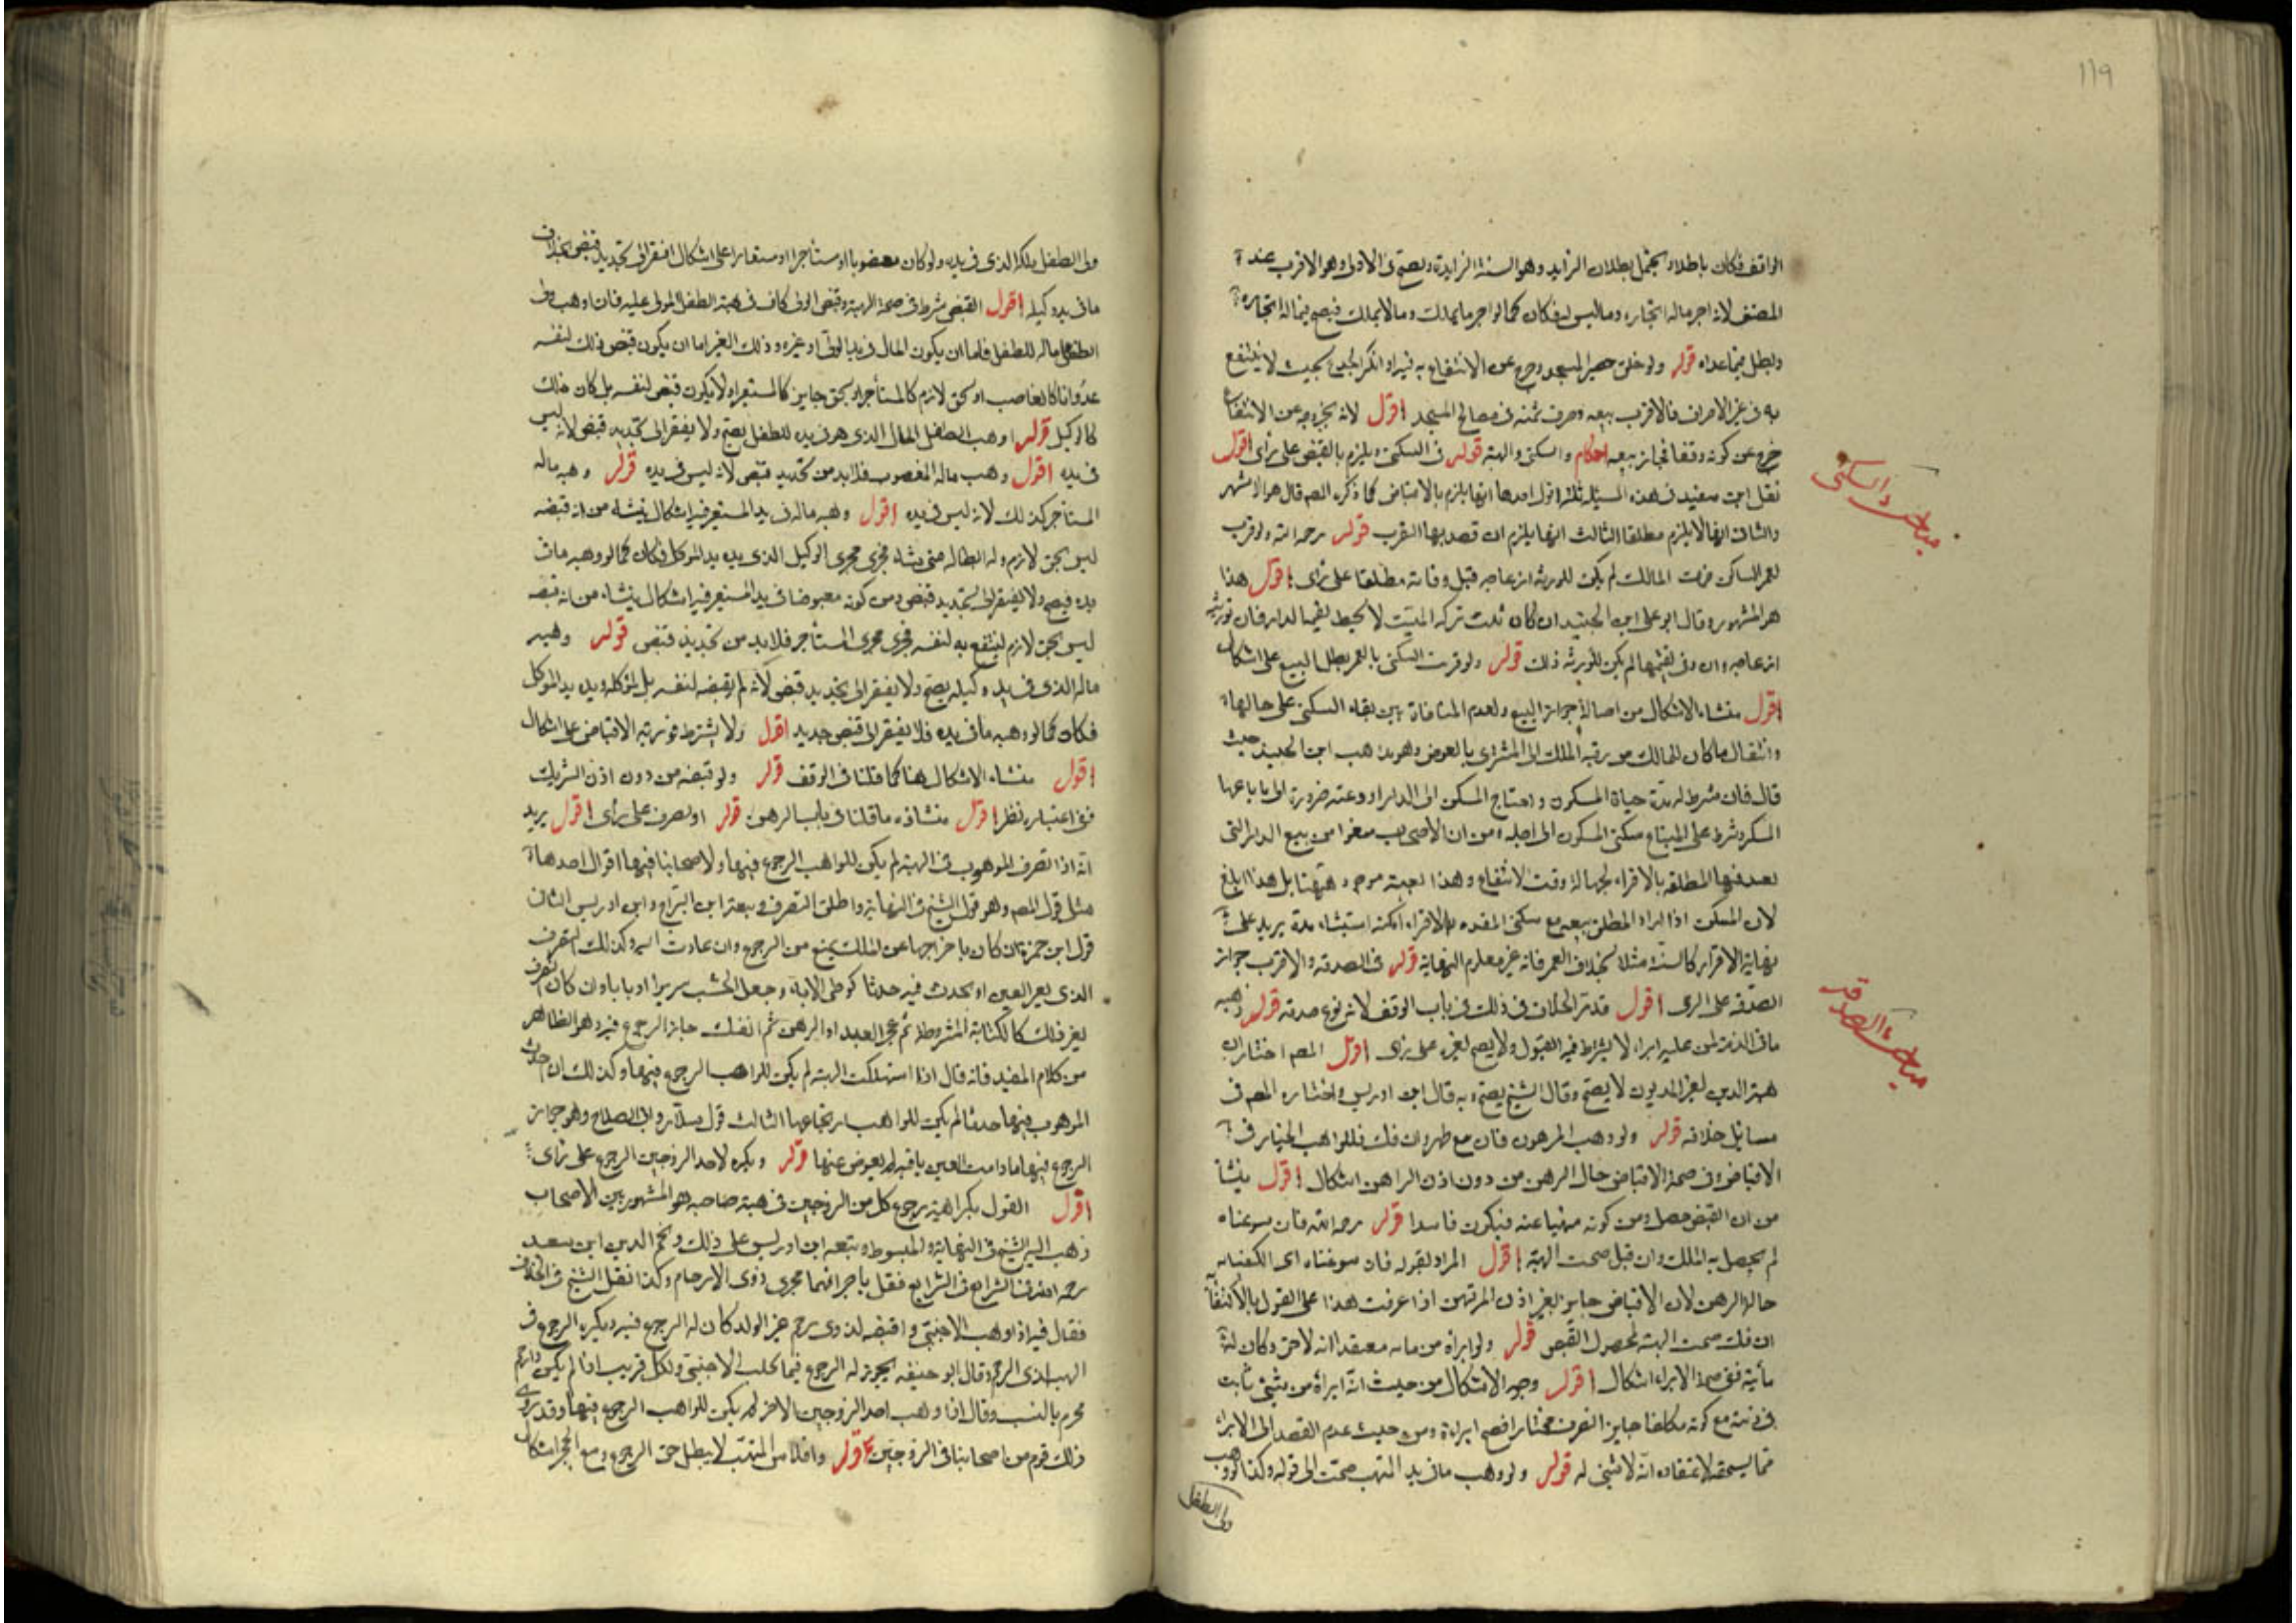 ١١٩
الواقف فكان باطلا ويحتمل بطلان الزايد وهو السنة الزايدة ويصح في الاولى وهو الاقرب عند
المصنف لانه اجر ماله اجارته وما ليس له فكان كما لو اجر ما يملك وما لا يملك فيصح فيما له اجارته
ويبطل فيما عداه قوله ولو خلق حصير المسجد وخرج عن الانتفاع به فيه او انكسر الجذع بحيث لا ينتفع
به في غير الاحراق فالاقرب بيعه وصرف ثمنه في مصالح المسجد اقول لانه بخروجه عن الانتفاع
خرج عن كونه وقفا فجاز بيعه احكام والسكنى والهبة قوله في السكنى ويلزم بالقبض على رأى اقول
مباحث السكنى
نقل ابن سعيد في هذه المسئلة ثلثة اقول احدها انها يلزم بالاقباض كما ذكره المصه قال هو الاشهر
والثاني انها لا يلزم مطلقا الثالث انها يلزم ان قصد بها القرب قوله رحمه الله ولو قرب
لعمر الساكن فمات المالك لم يكن للورثة ازعاجه قبل وفاته مطلقا على رأى اقول هذا
هو المشهور وقال ابو على ابن الجنيد ان كان ثلث تركه الميت لا تحيط بقيمة الدار فان لورثته
ازعاجه وان وفى بقيمتها لم يكن للورثة ذلك قوله ولو قرنت السكنى بالعمر بطل البيع على اشكال
اقول منشاء الاشكال من اصالة جواز البيع ولعدم المنافاة بين بقاء السكنى على حالها
وانتقال ما كان للمالك من رقبه الملك الى المشترى بالعوض وهو مذهب ابن الجنيد حيث
قال فان شرط له مدة حياة المسكون واحتاج المسكن الى الدار او دعته ضرورة الى باباعها
المسكن وشرط على المبتاع سكنى المسكون الى اجله ومن ان الاصحاب منعوا من بيع الدار التى
تعتد فيها المطلقه بالاقراء لجهالة وقت الانتفاع وهذا بعينه موجود هيهنا بل هذا ابلغ
لان المسكن اذا اراد المطلق بيعه مع سكنى المعتده بالاقراء امكنه استثناء مدة يزيد على
نهاية الاقراء كالسنة مثلا بخلاف العمر فانه غير معلوم النهاية قوله في الصدقه والاقرب جواز
مباحث الصدقة
الصدقه على الذمى اقول قد مر الخلاف في ذلك في باب الوقف لانه نوع صدقه قوله وهبه
ما في الذمة لمن عليه ابراء لا يشترط فيه القبول ولا يصح لغيره على رأى اقول المصه اختار ان
هبة الدين لغير المديون لا يصح وقال الشيخ يصح وبه قال ابن ادريس واختاره المصه في
مسائل خلافه قوله ولو وهب المرهون فان مع ظهر وان فك فللواهب الخيار في
الاقباض وفى صحة الاقباض حال الرهن من دون اذن الراهن اشكال اقول ينشأ
من ان القبض حصل ومن كونه منهيا عنه فيكون فاسدا قوله رحمه الله فان سوغناه
لم يحصل به الملك وان قبل صحت الهبة اقول المراد بقوله فان سوغناه اى اكتفينا به
حالة الرهن لان الاقباض جايز بغير اذن المرتهن اذا عرفت هذا على القول بالاكتفاء
ان فك صحت الهبة لحصول القبض قوله ولو ابراه من مائه معتقدا انه لا حق وكان له
مأية ففى صحة الابراء اشكال اقول وجه الاشكال من حيث انه ابراه من شئ ثابت
في ذمته مع كونه مكلفا جايز التصرف مختارا فصح ابراءه ومن حيث عدم القصد الى الابراء
مما يستحقه لاعتقاده انه لا شئ له قوله ولو وهب ما في يد المتهب صحت الى قوله وكذا لو وهب
ولى الطفل
ولى الطفل ملكه الذى في يده ولو كان مغصوبا او مستأجرا او مستعارا على اشكال افتقر الى تجديد قبض بخلاف
ما في يد وكيله اقول القبض شرط في صحة الهبة وقبض الولى كاف في هبة الطفل المولى عليه فان وهب ولى
الطفل ماله للطفل فاما ان يكون المال في يد الولى او غيره وذلك الغير اما ان يكون قبض ذلك لنفسه
عدوانا كالغاصب او بحق لازم كالمستأجر او بحق جايز كالمستعير او لا يكون قبض لنفسه بل كان ذلك
كالوكيل قوله او وهب الطفل المال الذى هو في يده للطفل يصح ولا يفتقر الى تجديد قبض لانه ليس
في يده اقول وهب ماله المغصوب فلا بد من تجديد قبض لانه ليس في يده قوله وهبه ماله
المستأجر كذلك لانه ليس في يده اقول وهبه ماله في يد المستعير فيه اشكال ينشاء من انه قبضه
ليس بحق لازم وله ابطاله متى يشاء فجرى مجرى الوكيل الذى يده يد الموكل فكان كما لو وهبه ما في
يده فيصح ولا يفتقر الى تجديد قبض ومن كونه مقبوضا في يد المستعير فيه اشكال ينشاء من انه قبضه
ليس بحق لازم لينتفع به لنفسه فجرى مجرى المستأجر فلا بد من تجديد قبض قوله وهبه
ماله الذى في يد وكيله يصح ولا يفتقر الى تجديد قبض لانه لم يقبضه لنفسه بل لموكله ويده يد الموكل
فكان كما لو وهبه ما في يده فلا يفتقر الى قبض جديد اقول ولا يشترط فوريه الاقباض على اشكال
اقول منشاء الاشكال هنا كما قلنا في الوقف قوله ولو قبضه من دون اذن الشريك
ففى اعتباره نظر اقول منشاؤه ما قلنا في باب الرهن قوله او تصرف على رأى اقول يريد
انه اذا تصرف الموهوب في الهبة لم يكن للواهب الرجوع فيها ولاصحابنا فيها اقوال احدها
مثل قول المصه وهو قول الشيخ في النهاية واطلق التصرف وتبعه ابن البراج وابن ادريس الثانى
قول ابن حمزة ان كان باخراجها عن الملك يمنع من الرجوع وان عادت اليه وكذلك التصرف
الذى يغير العين او يحدث فيه حدثا كوطى الامة وجعل الخشب سريرا او بابا وان كان التصرف
بغير ذلك كالكتابة المشروطة ثم عجز العبد او الرهن ثم انفك جاز الرجوع فيه وهو الظاهر
من كلام المفيد فانه قال اذا استهلكت الهبة لم يكن للواهب الرجوع فيها وكذلك ان احدث
الموهوب فيها حدثا لم يكن للواهب ارتجاعها الثالث قول سلار وابى الصلاح وهو جواز
الرجوع فيها ما دامت العين باقيه لم يعوض عنها قوله ويكره لاحد الزوجين الرجوع على رأى
اقول القول بكراهية رجوع كل من الزوجين في هبة صاحبه هو المشهور بين الاصحاب
ذهب اليه الشيخ في النهاية والمبسوط وتبعه ابن ادريس على ذلك ونجم الدين ابن سعيد
رحمه الله في الشرايع فقل باجرائهما مجرى ذوى الارحام وكذا نقل الشيخ في الخلاف
فقال فيه اذا وهب الاجنبى واقبضه لذوى رحم غير الولد كان له الرجوع فيه ويكره الرجوع في
الهبة لذى الرحم وقال ابو حنيفه يجوز له الرجوع فيما لاجنبى ولكل قريب اذا لم يكن ذا رحم
محرم بالنسب وقال اذا وهب احد الزوجين الاخر لم يكن للواهب الرجوع فيها وقد روى
ذلك قوم من اصحابنا في الزوجين قوله وافلاس المتهب لا يبطل حق الرجوع ومع الحجر اشكال